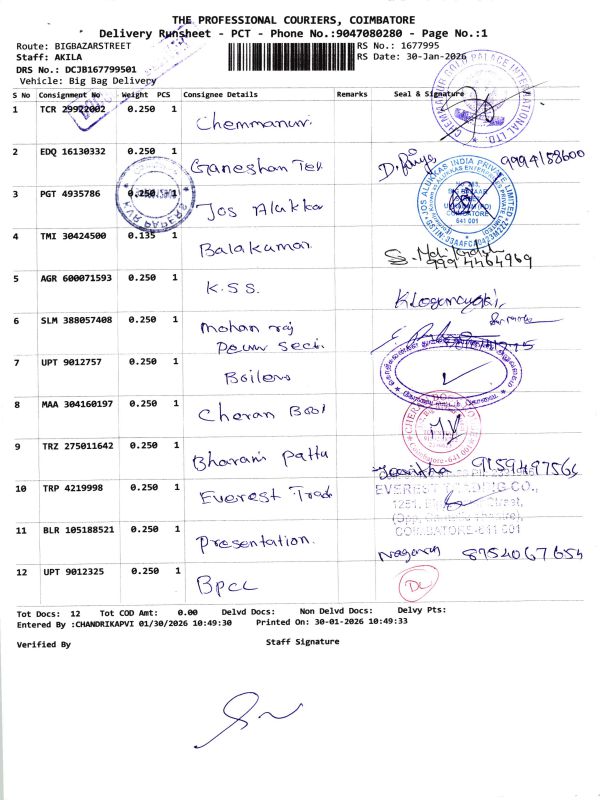 THE PROFESSIONAL COURIERS, COIMBATORE
Delivery Runsheet - PCT - Phone No.:9047080280 - Page No.:1
Route: BIGBAZARSTREET RS No.: 1677995
Staff: AKILA RS Date: 30-Jan-2026
DRS No.: DCJB167799501
Vehicle: Big Bag Delivery
S No Consignment No Weight PCS Consignee Details Remarks Seal & Signature
1 TCR 29922002 0.250 1 Chemmanur.
CHEMMANUR GOLD PALACE INTERNATIONAL LTD.
2 EDQ 16130332 0.250 1 Ganeshan Tex 9994158600
3 PGT 4935786 0.250 1 Jos Alukka
KVR PAPERS
JOS ALUKKAS INDIA PRIVATE LIMITED
COIMBATORE
641 001
4 TMI 30424500 0.135 1 Balakumar 9994464969
5 AGR 600071593 0.250 1 K.S.S. K.Loganayaki,
6 SLM 388057408 0.250 1 Mohan raj
7 UPT 9012757 0.250 1 Boilers
8 MAA 304160197 0.250 1 Cheran Bool
Coimbatore-641 001
9 TRZ 275011642 0.250 1 Bharani Pattu 9159497564
10 TRP 4219998 0.250 1 Everest Trad
EVEREST TRADING CO.,
COIMBATORE-641 001
11 BLR 105188521 0.250 1 Presentation. Nagaraj 8754067654
12 UPT 9012325 0.250 1 BPCL DL
Tot Docs: 12 Tot COD Amt: 0.00 Delvd Docs: Non Delvd Docs: Delvy Pts:
Entered By :CHANDRIKAPVI 01/30/2026 10:49:30 Printed On: 30-01-2026 10:49:33
Verified By Staff Signature